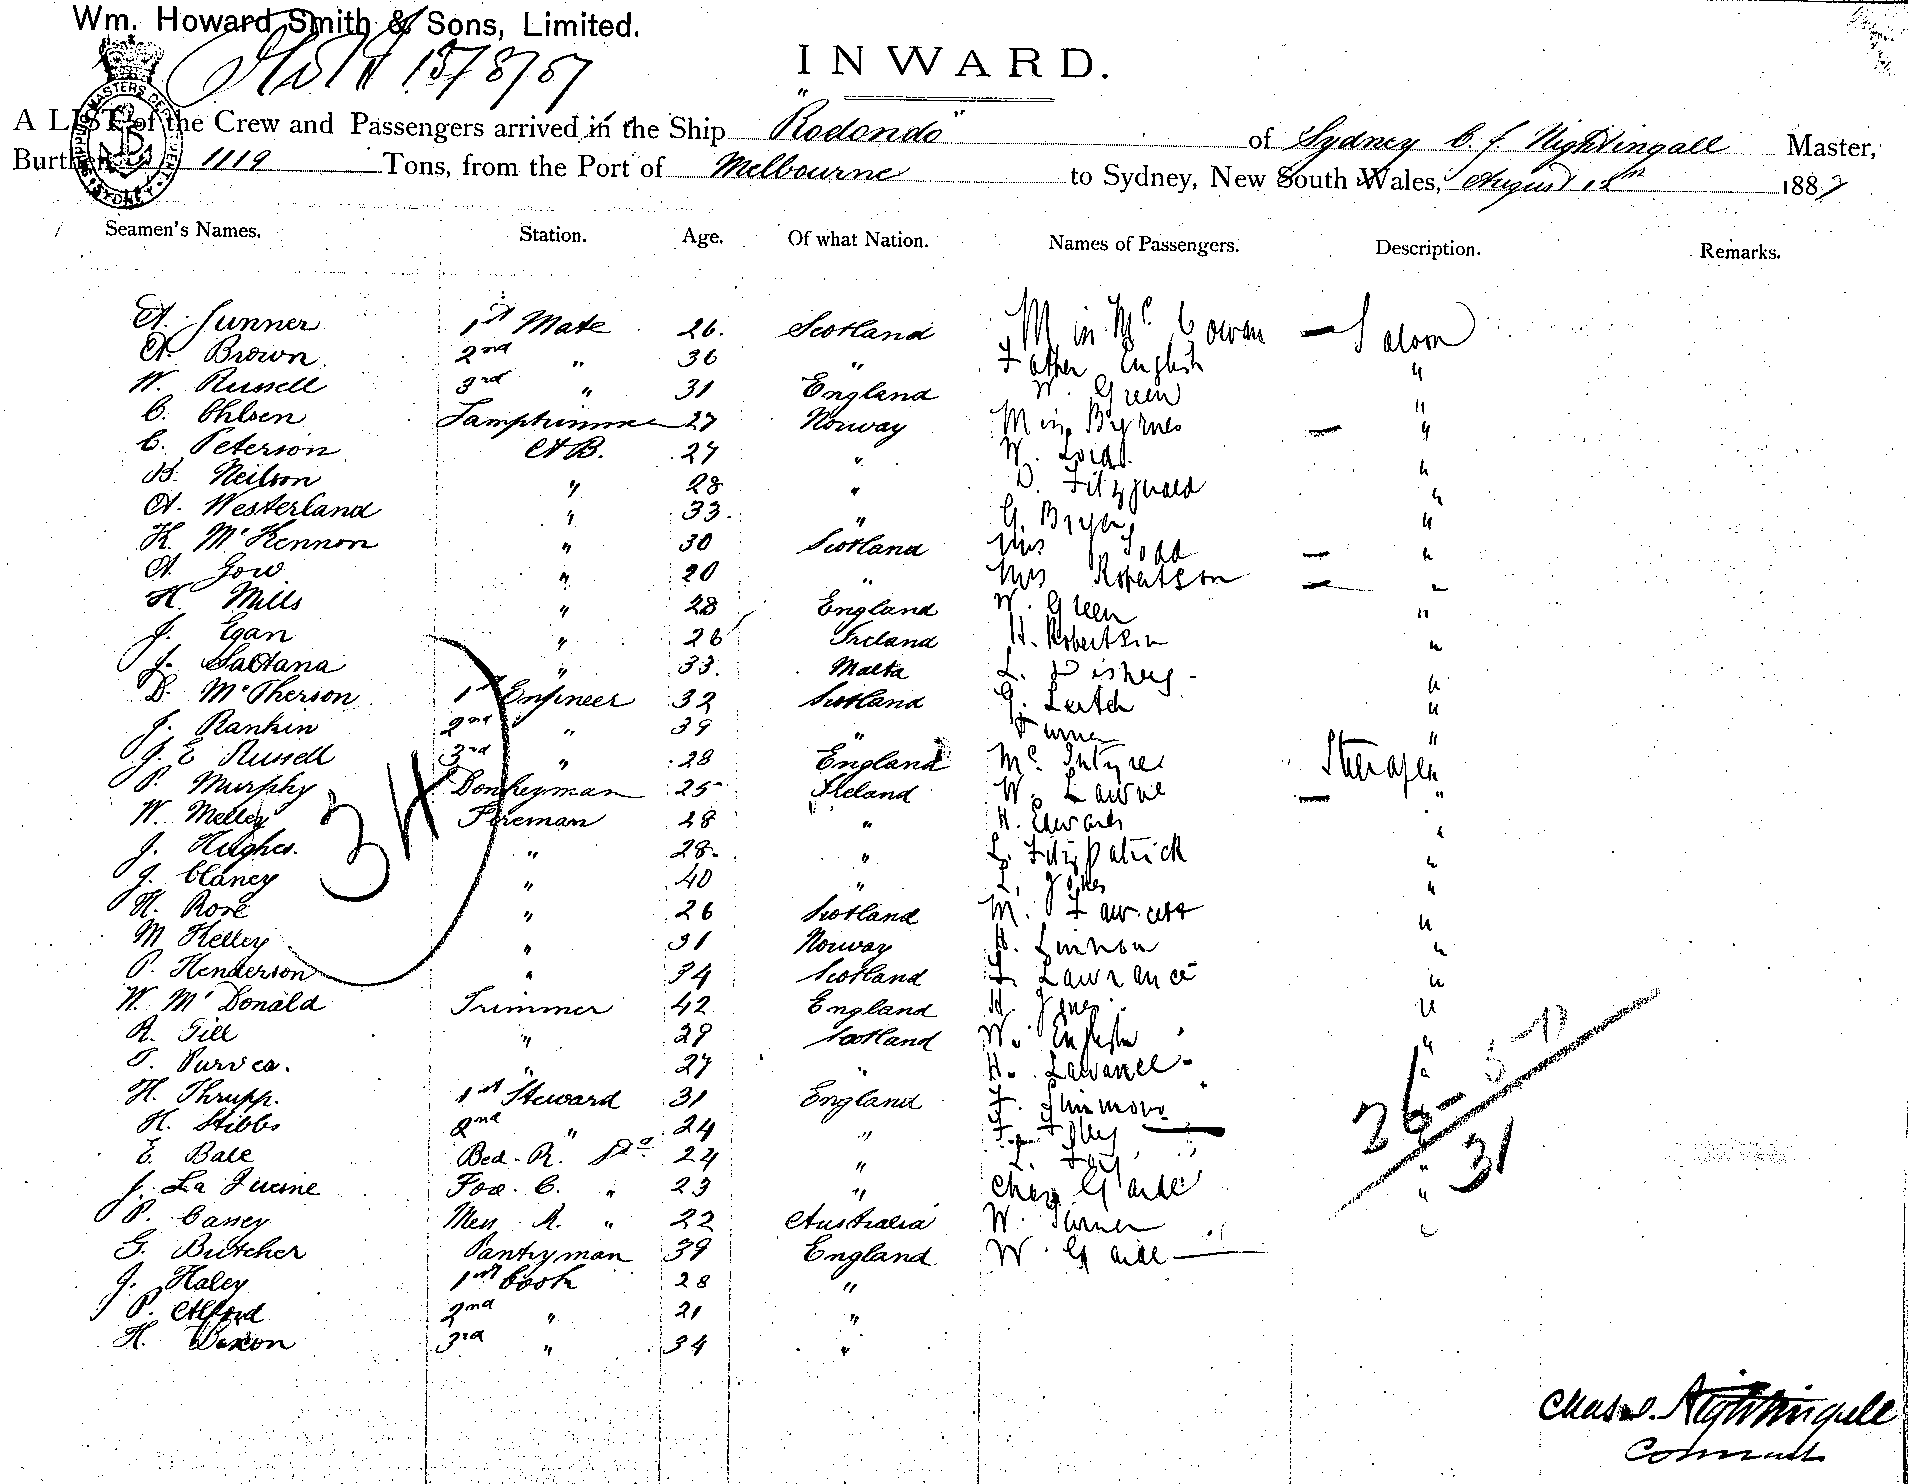 Wm. Howard Smith & Sons, Limited.
15/8/87
INWARD.
A LIST of the Crew and Passengers arrived in the Ship "Rodondo" of Sydney C. J. Nightingall Master,
Burthen 1119 Tons, from the Port of Melbourne to Sydney, New South Wales, August 15th 1887
Seamen's Names. Station. Age. Of what Nation. Names of Passengers. Description. Remarks.
A. Gunner 1st Mate 26. Scotland Miss McCowan — Saloon
A. Brown 2nd " 36 " Father English "
W. Russell 3rd " 31 England W. Green "
C. Ohlsen Lamptrimmer 27 Norway Miss Byrnes — "
C. Peterson AB. 27 " W. "
B. Neilson " 28 " D. Fitzgerald "
A. Westerland " 33. " G. Bryer "
K. McKennon " 30 Scotland Mrs Todd — "
A. Gow " 20 " Mrs Robertson — "
H. Mills " 28 England W. Green "
J. Egan " 26 Ireland H. Robertson "
J. Saltana " 33. Malta L. "
D. McPherson 1st Engineer 32 Scotland G. Leitch "
J. Rankin 2nd " 39 " Turner "
J. E Russell 3rd " 28 England McIntyre Steerage
P. Murphy Donkeyman 25 Ireland W. — "
W. Melley Fireman 28 " H. Edwards "
J. Hughes. " 28. " L. Fitzpatrick "
J. Clancy " 40 " L. "
H. Rose " 26 Scotland M. Fawcett "
M Kelley " 31 Norway "
P. Henderson " 34 Scotland Lawrance "
W. McDonald Trimmer 42 England H. Jones "
R. Gill " 29 Scotland W. English "
T. Purves. " 27 " H. "
H. Thrupp. 1st Steward 31 England F.
H. Stibbs 2nd " 24 " F. Foley —
E. Bale Bed. R. Do 24 " L.
J. La Fore. C. " 23 " Chas
P. Cassey Mess R. " 22 Australia W. Turner
G. Butcher Pantryman 39 England W.
J. Haley 1st Cook 28 "
P. Alford 2nd " 21 "
H. Dixon 3rd " 34 "
34
26 - 5
31
Chas. J. Nightingall